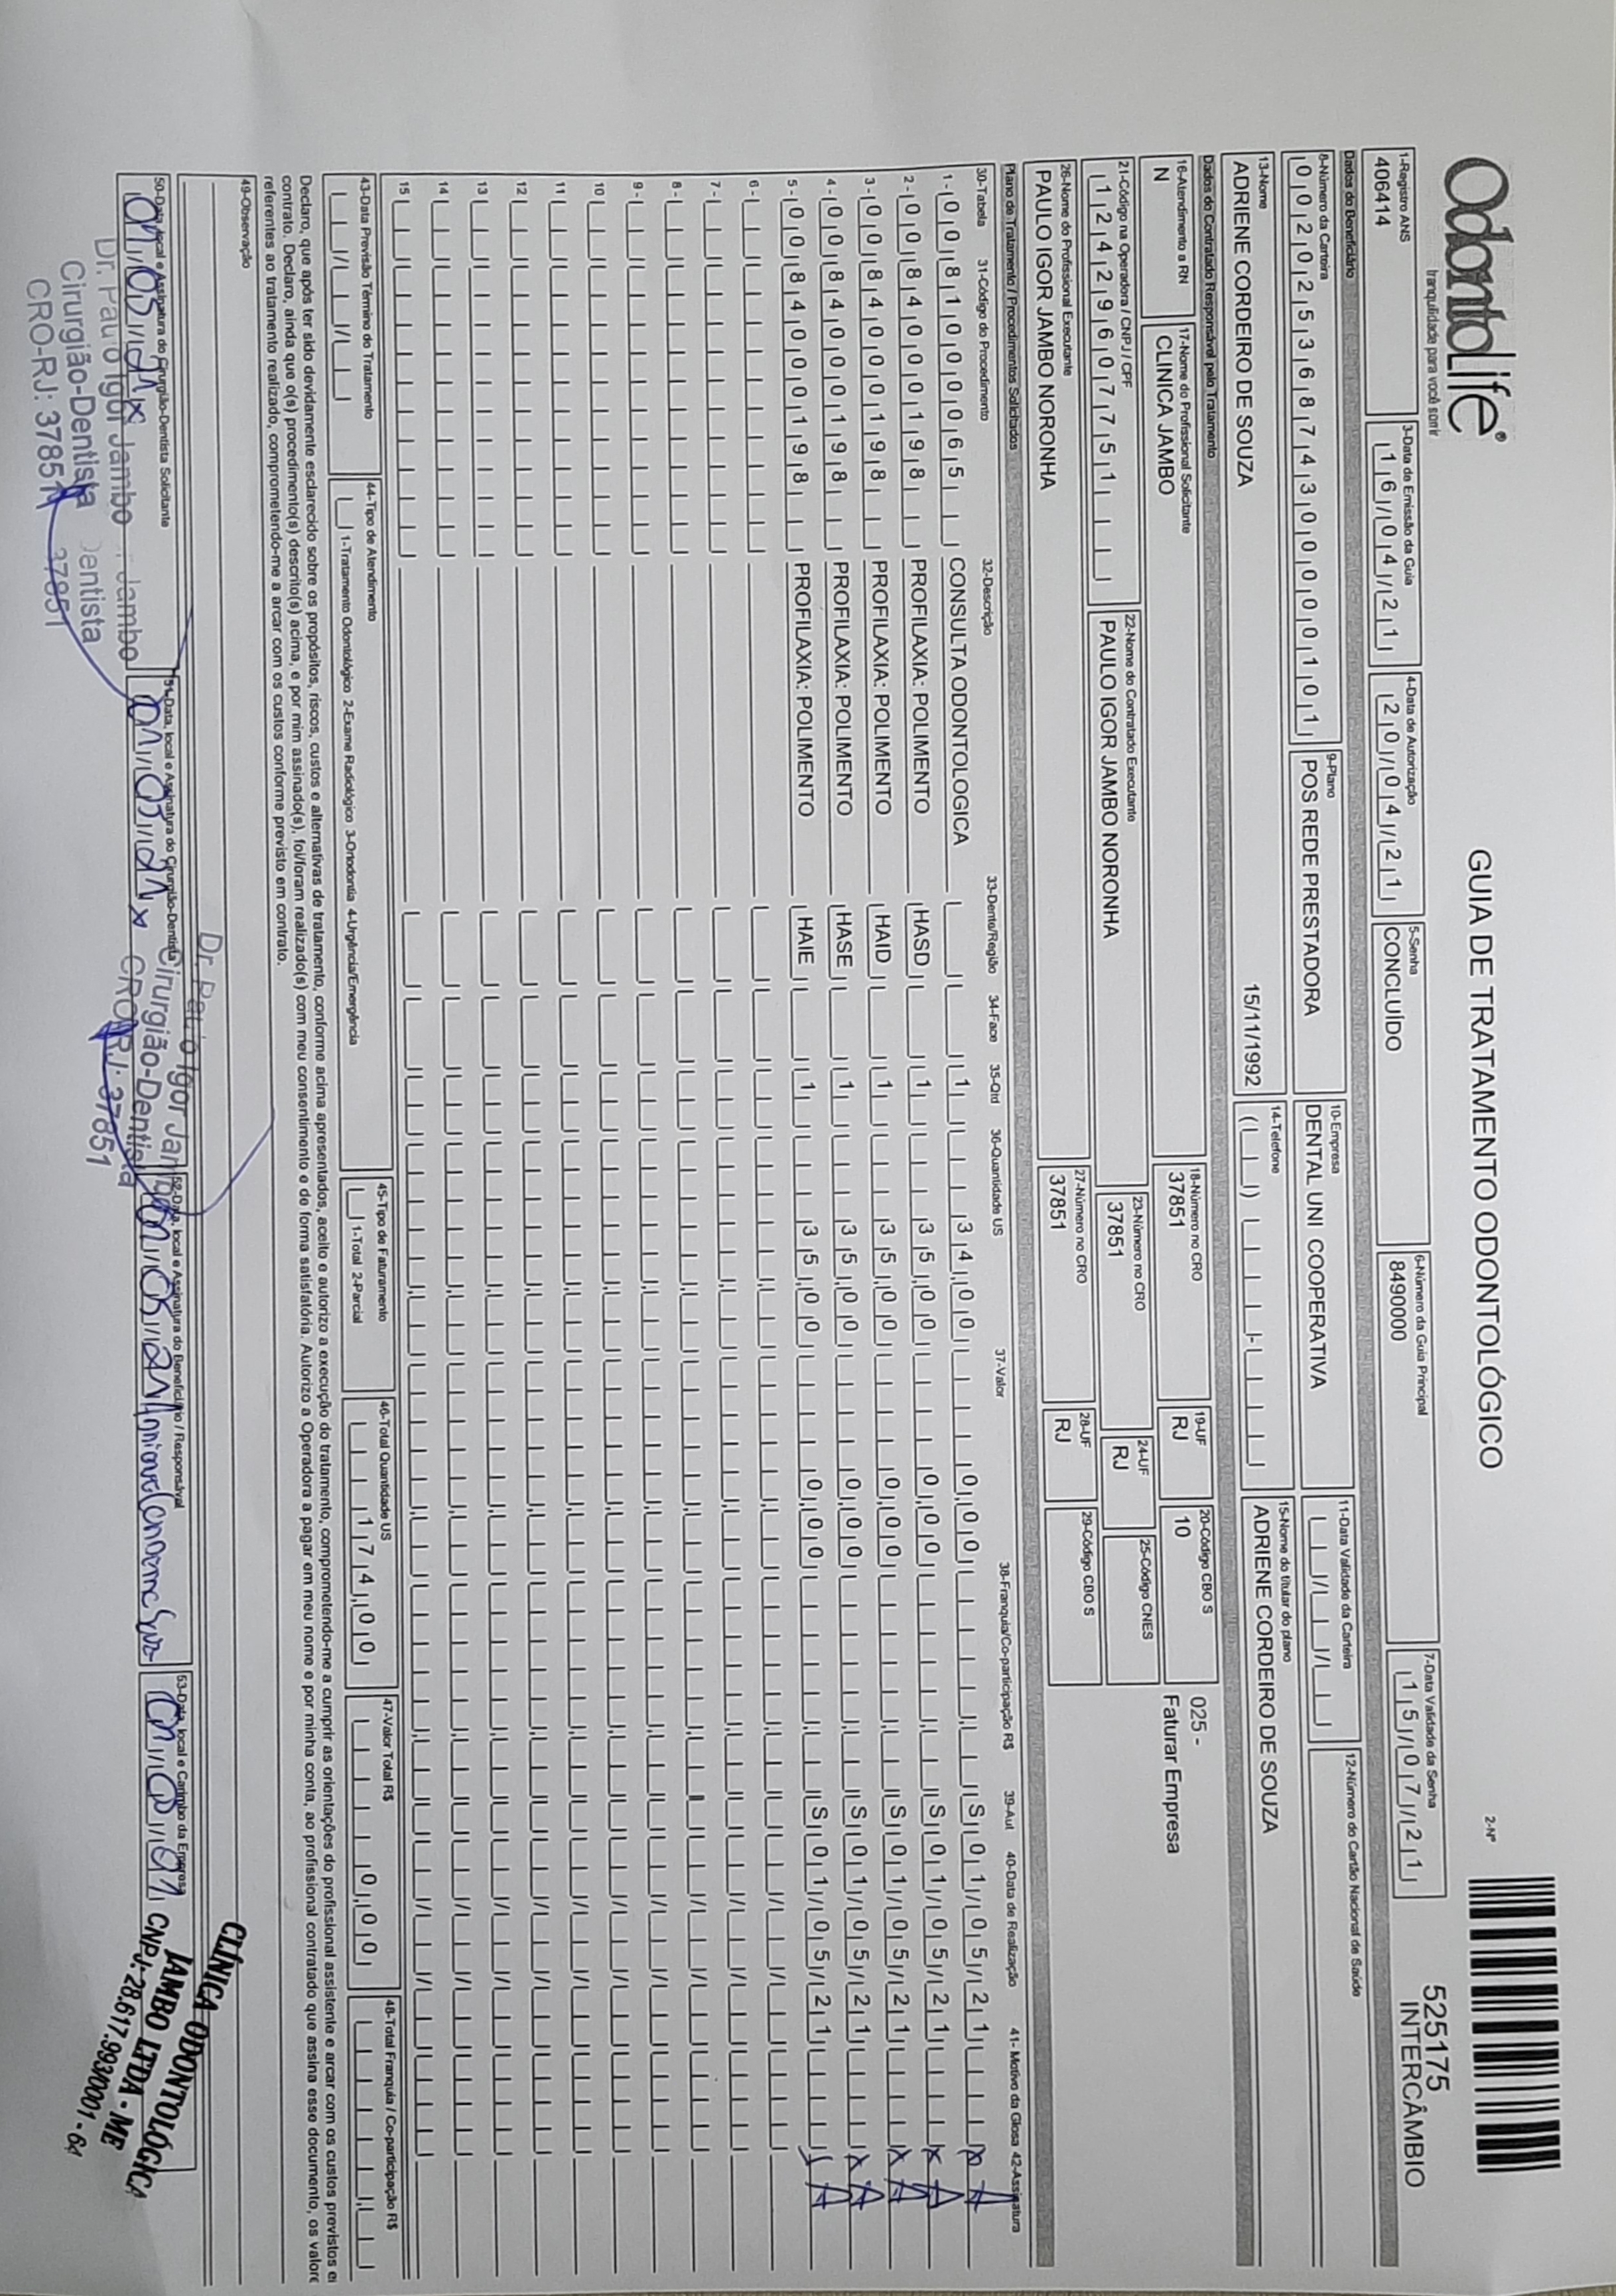 OdontoLife®
tranquilidade para você sorrir
GUIA DE TRATAMENTO ODONTOLÓGICO
2-Nº
525175
INTERCÂMBIO
1-Registro ANS
406414
3-Data de Emissão da Guia
16/04/21
4-Data de Autorização
20/04/21
5-Senha
CONCLUÍDO
6-Número da Guia Principal
8490000
7-Data Validade da Senha
15/07/21
Dados do Beneficiário
8-Número da Carteira
00202536874300000101
9-Plano
POS REDE PRESTADORA
10-Empresa
DENTAL UNI COOPERATIVA
11-Data Validade da Carteira
12-Número do Cartão Nacional de Saúde
13-Nome
ADRIENE CORDEIRO DE SOUZA
15/11/1992
14-Telefone
15-Nome do titular do plano
ADRIENE CORDEIRO DE SOUZA
Dados do Contratado Responsável pelo Tratamento
16-Atendimento a RN
N
17-Nome do Profissional Solicitante
CLINICA JAMBO
18-Número no CRO
37851
19-UF
RJ
20-Código CBO S
10
025 -
Faturar Empresa
21-Código na Operadora / CNPJ / CPF
12429607751
22-Nome do Contratado Executante
PAULO IGOR JAMBO NORONHA
23-Número no CRO
37851
24-UF
RJ
25-Código CNES
26-Nome do Profissional Executante
PAULO IGOR JAMBO NORONHA
27-Número no CRO
37851
28-UF
RJ
29-Código CBO S
Plano de Tratamento / Procedimentos Solicitados
30-Tabela 31-Código do Procedimento 32-Descrição 33-Dente/Região 34-Face 35-Qtd 36-Quantidade US 37-Valor 38-Franquia/Co-participação R$ 39-Aut 40-Data de Realização 41- Motivo da Glosa 42-Assinatura
1 - 00 81000065 CONSULTA ODONTOLOGICA 1 34,00 0,00 S 01/05/21
2 - 00 84000198 PROFILAXIA: POLIMENTO HASD 1 35,00 0,00 S 01/05/21
3 - 00 84000198 PROFILAXIA: POLIMENTO HAID 1 35,00 0,00 S 01/05/21
4 - 00 84000198 PROFILAXIA: POLIMENTO HASE 1 35,00 0,00 S 01/05/21
5 - 00 84000198 PROFILAXIA: POLIMENTO HAIE 1 35,00 0,00 S 01/05/21
6 -
7 -
8 -
9 -
10
11
12
13
14
15
43-Data Previsão Término do Tratamento
44-Tipo de Atendimento
1-Tratamento Odontológico 2-Exame Radiológico 3-Ortodontia 4-Urgência/Emergência
45-Tipo de Faturamento
1-Total 2-Parcial
46-Total Quantidade US
174,00
47-Valor Total R$
0,00
48-Total Franquia / Co-participação R$
Declaro, que após ter sido devidamente esclarecido sobre os propósitos, riscos, custos e alternativas de tratamento, conforme acima apresentados, aceito e autorizo a execução do tratamento, comprometendo-me a cumprir as orientações do profissional assistente e arcar com os custos previstos em
contrato. Declaro, ainda que o(s) procedimento(s) descrito(s) acima, e por mim assinado(s), foi/foram realizado(s) com meu consentimento e de forma satisfatória. Autorizo a Operadora a pagar em meu nome e por minha conta, ao profissional contratado que assina esse documento, os valores
referentes ao tratamento realizado, comprometendo-me a arcar com os custos conforme previsto em contrato.
49-Observação
50-Data, local e Assinatura do Cirurgião-Dentista Solicitante
01/05/21
51-Data, local e Assinatura do Cirurgião-Dentista
01/05/21
52-Data, local e Assinatura do Beneficiário / Responsável
01/05/21
53-Data, local e Carimbo da Empresa
Dr. Paulo Igor Jambo
Cirurgião-Dentista
CRO-RJ: 37851
Dr. Paulo Igor Jambo
Cirurgião-Dentista
CRO-RJ: 37851
CLÍNICA ODONTOLÓGICA
JAMBO LTDA - ME
CNPJ: 28.617.993/0001 - 61